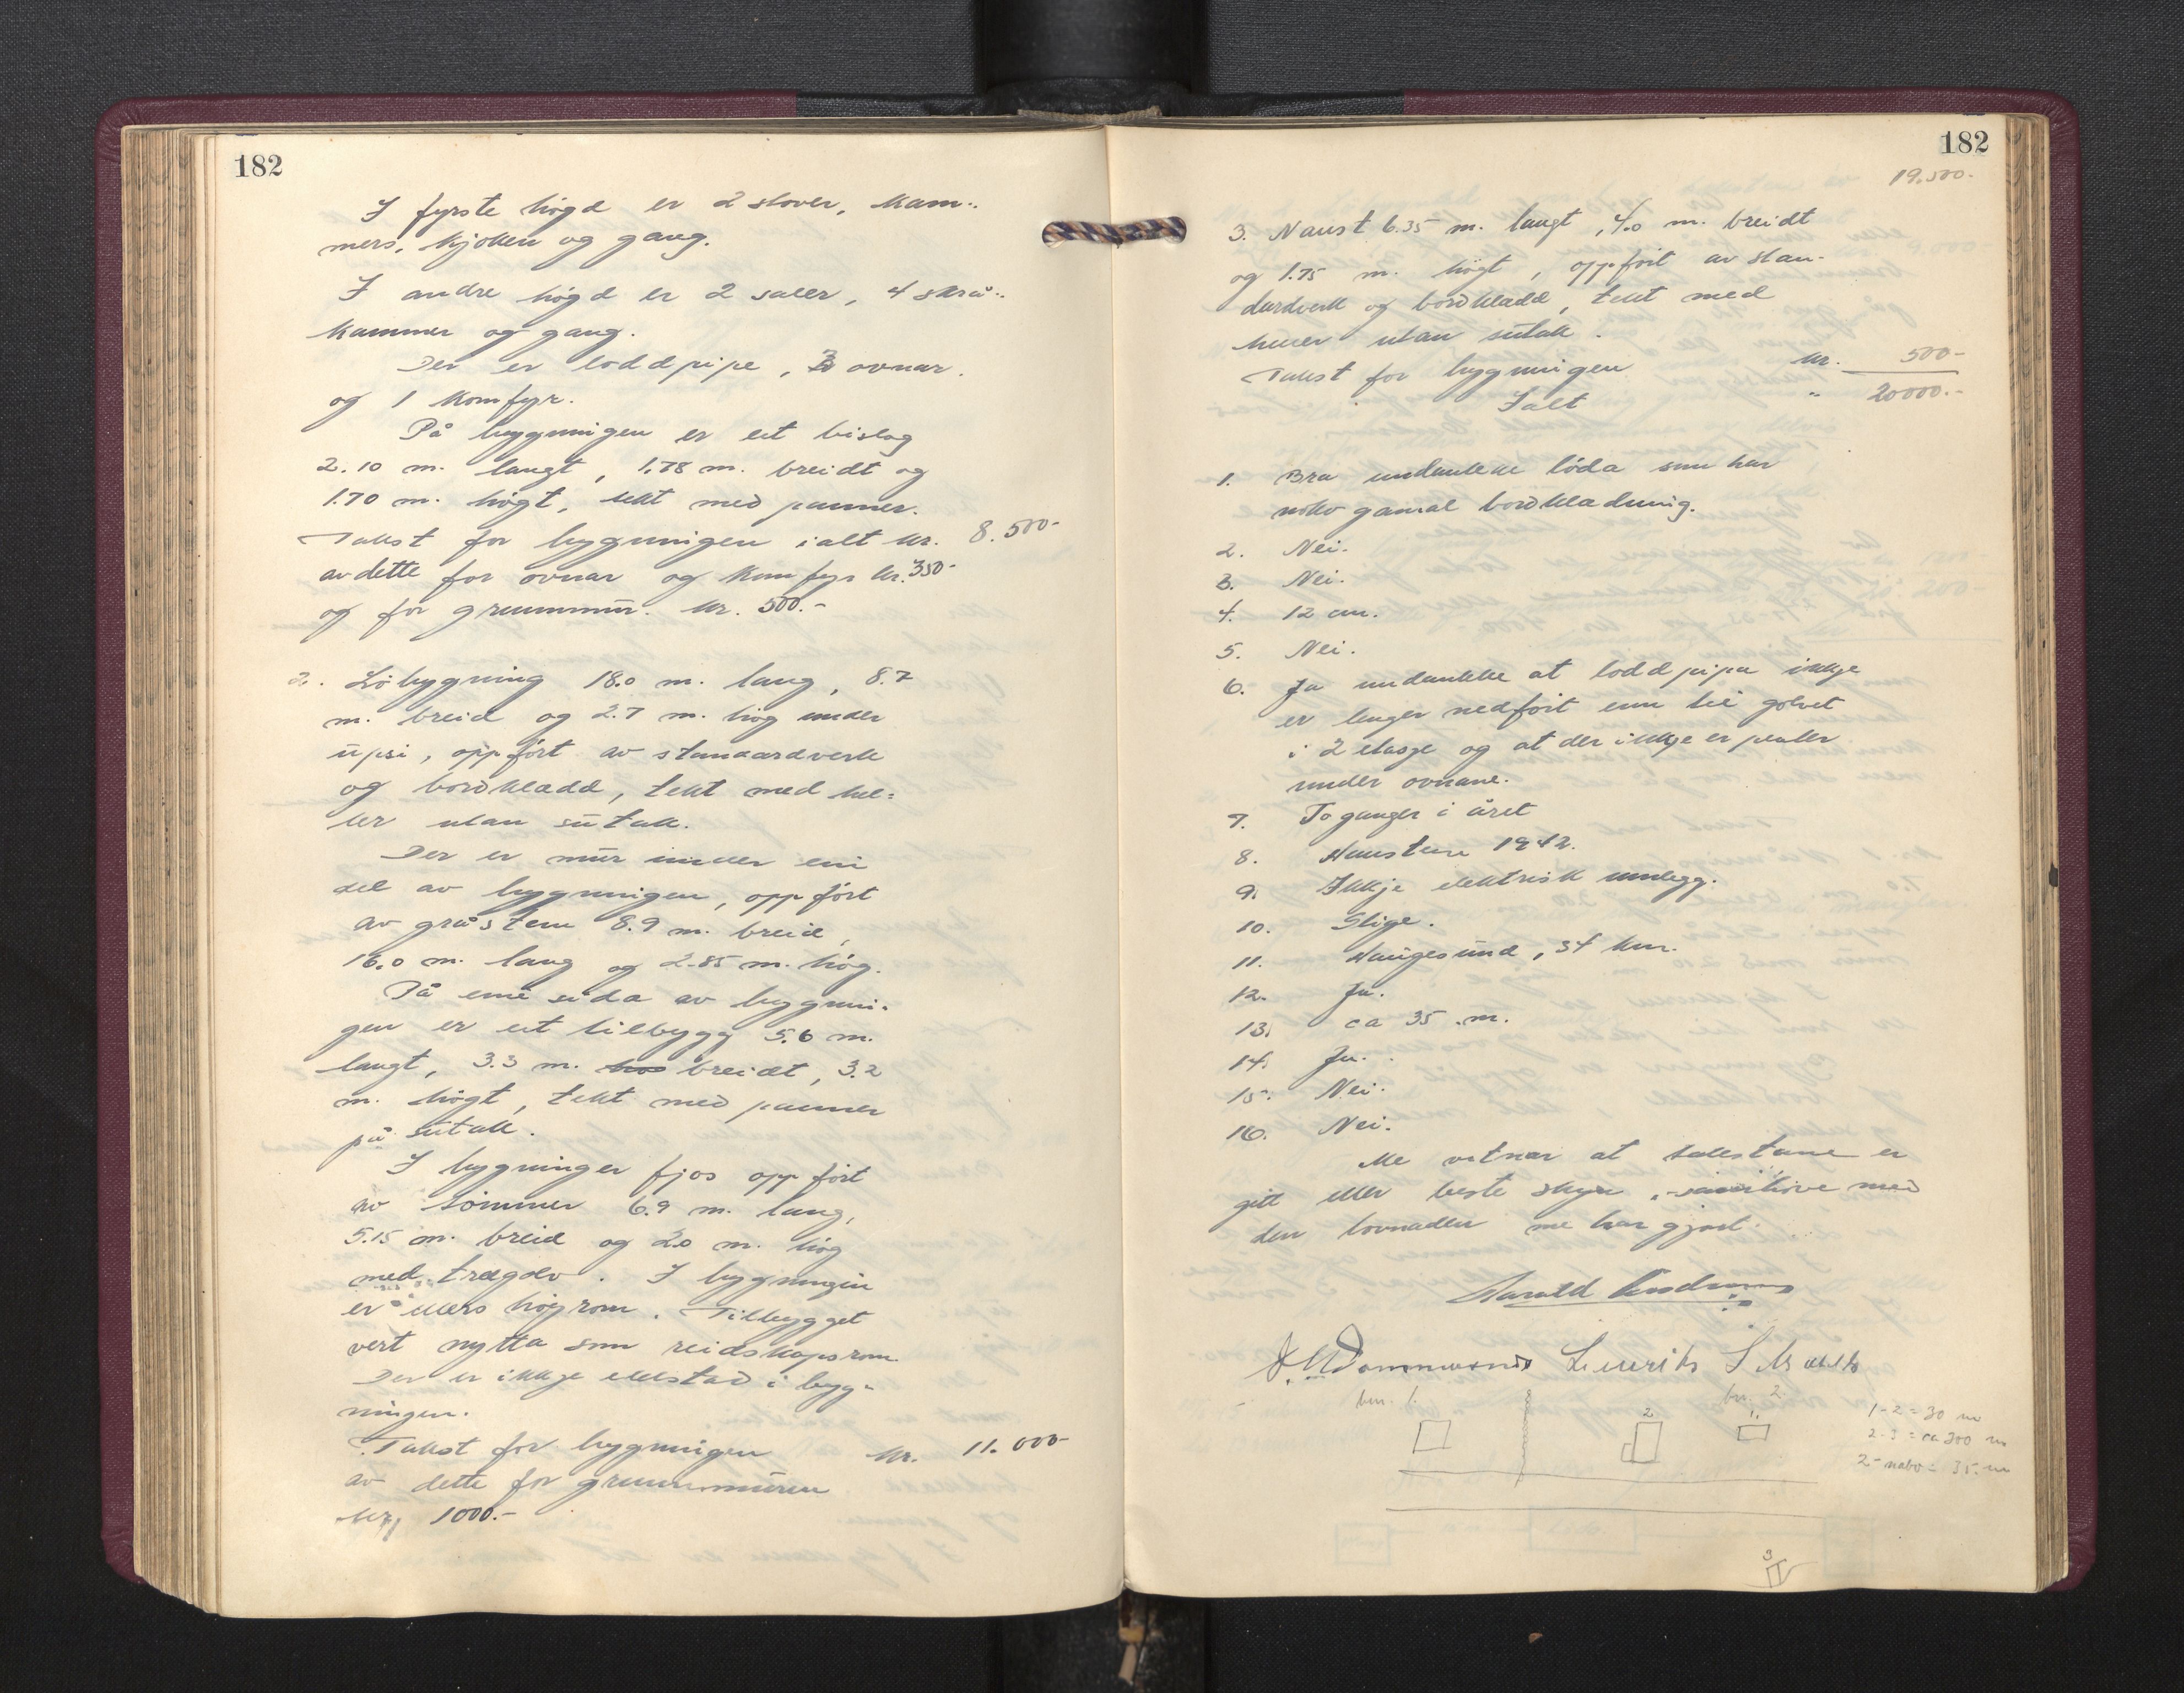 182
I fyrste högd er 2 stover, kam-
mers, kjöken og gang.
I andre högd er 2 saler, 4 skrå-
kammer og gang.
Der er loddpipe, 3 ovnar
og 1 komfyr.
På bygningen er eit bislag
2.10 m. langt, 1.78 m. breidt og
1.70 m. högt, tekt med panner.
Takst for bygningen ialt kr. 8.500-
av dette for ovnar og komfyr kr. 350-
og for grunnmur. kr. 500.-
2. Löbygning 18.0 m. lang, 8.7
m. breid og 2.7 m. hög under
upsi, oppfört av standardverk
og bordkledd, tekt med hel-
ler utan sutak.
Der er mur under ein
del av bygningen, oppfört
av gråstein 8.9 m. breid,
16.0 m. lang og 2.85 m. hög.
På eine sida av bygnin-
gen er eit tilbygg 5.6 m.
langt, 3.3 m. breidt, 3.2
m. högt, tekt med panner
på sutak.
I bygningen fjos oppfört
av tömmer 6.9 m. lang,
5.15 m. breid og 2.0 m. hög
med tregolv. I bygningen
er ellers högrom. Tilbygget
vert nytta som reidskapsrom
Der er ikkje eldstad i byg-
ningen.
Takst for bygningen kr. 11.000-
av dette for grunnmuren
kr. 1000.-
182
19.500.-
3. Naust 6.35 m. langt, 4.0 m. breidt
og 1.75 m. högt, oppfört av stan-
dardverk og bordkledd, tekt med
heller utan sutak.
Takst for bygningen kr. 500-
Ialt " 20000.-
1. Bra undanteke löda som har
noko gamal bordkledning.
2. Nei.
3. Nei.
4. 12 cm.
5. Nei.
6. Ja undanteke at loddpipa ikkje
er lenger nedfört enn til golvet
i 2 etasje og at der ikkje er plater
under ovnane.
7. To ganger i året
8. Hausten 1942.
9. Ikkje elektrisk innlegg.
10. Stige.
11. Haugesund, 34 km.
12. Ja.
13. ca 35 m.
14. Ja.
15. Nei.
16. Nei.
Me vitnar at takstane er
gitt etter beste skjön med
den lovnaden me har gjort.
Harald
bnr. 1. bnr. 2.
2. 1.
1-2 = 30 m
2-3 = ca 300 m
2- nabo = 35 m
3